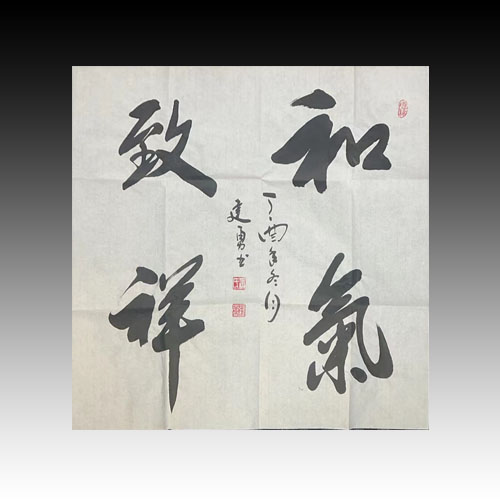 和氣
致祥
丁酉年冬月
建勇书